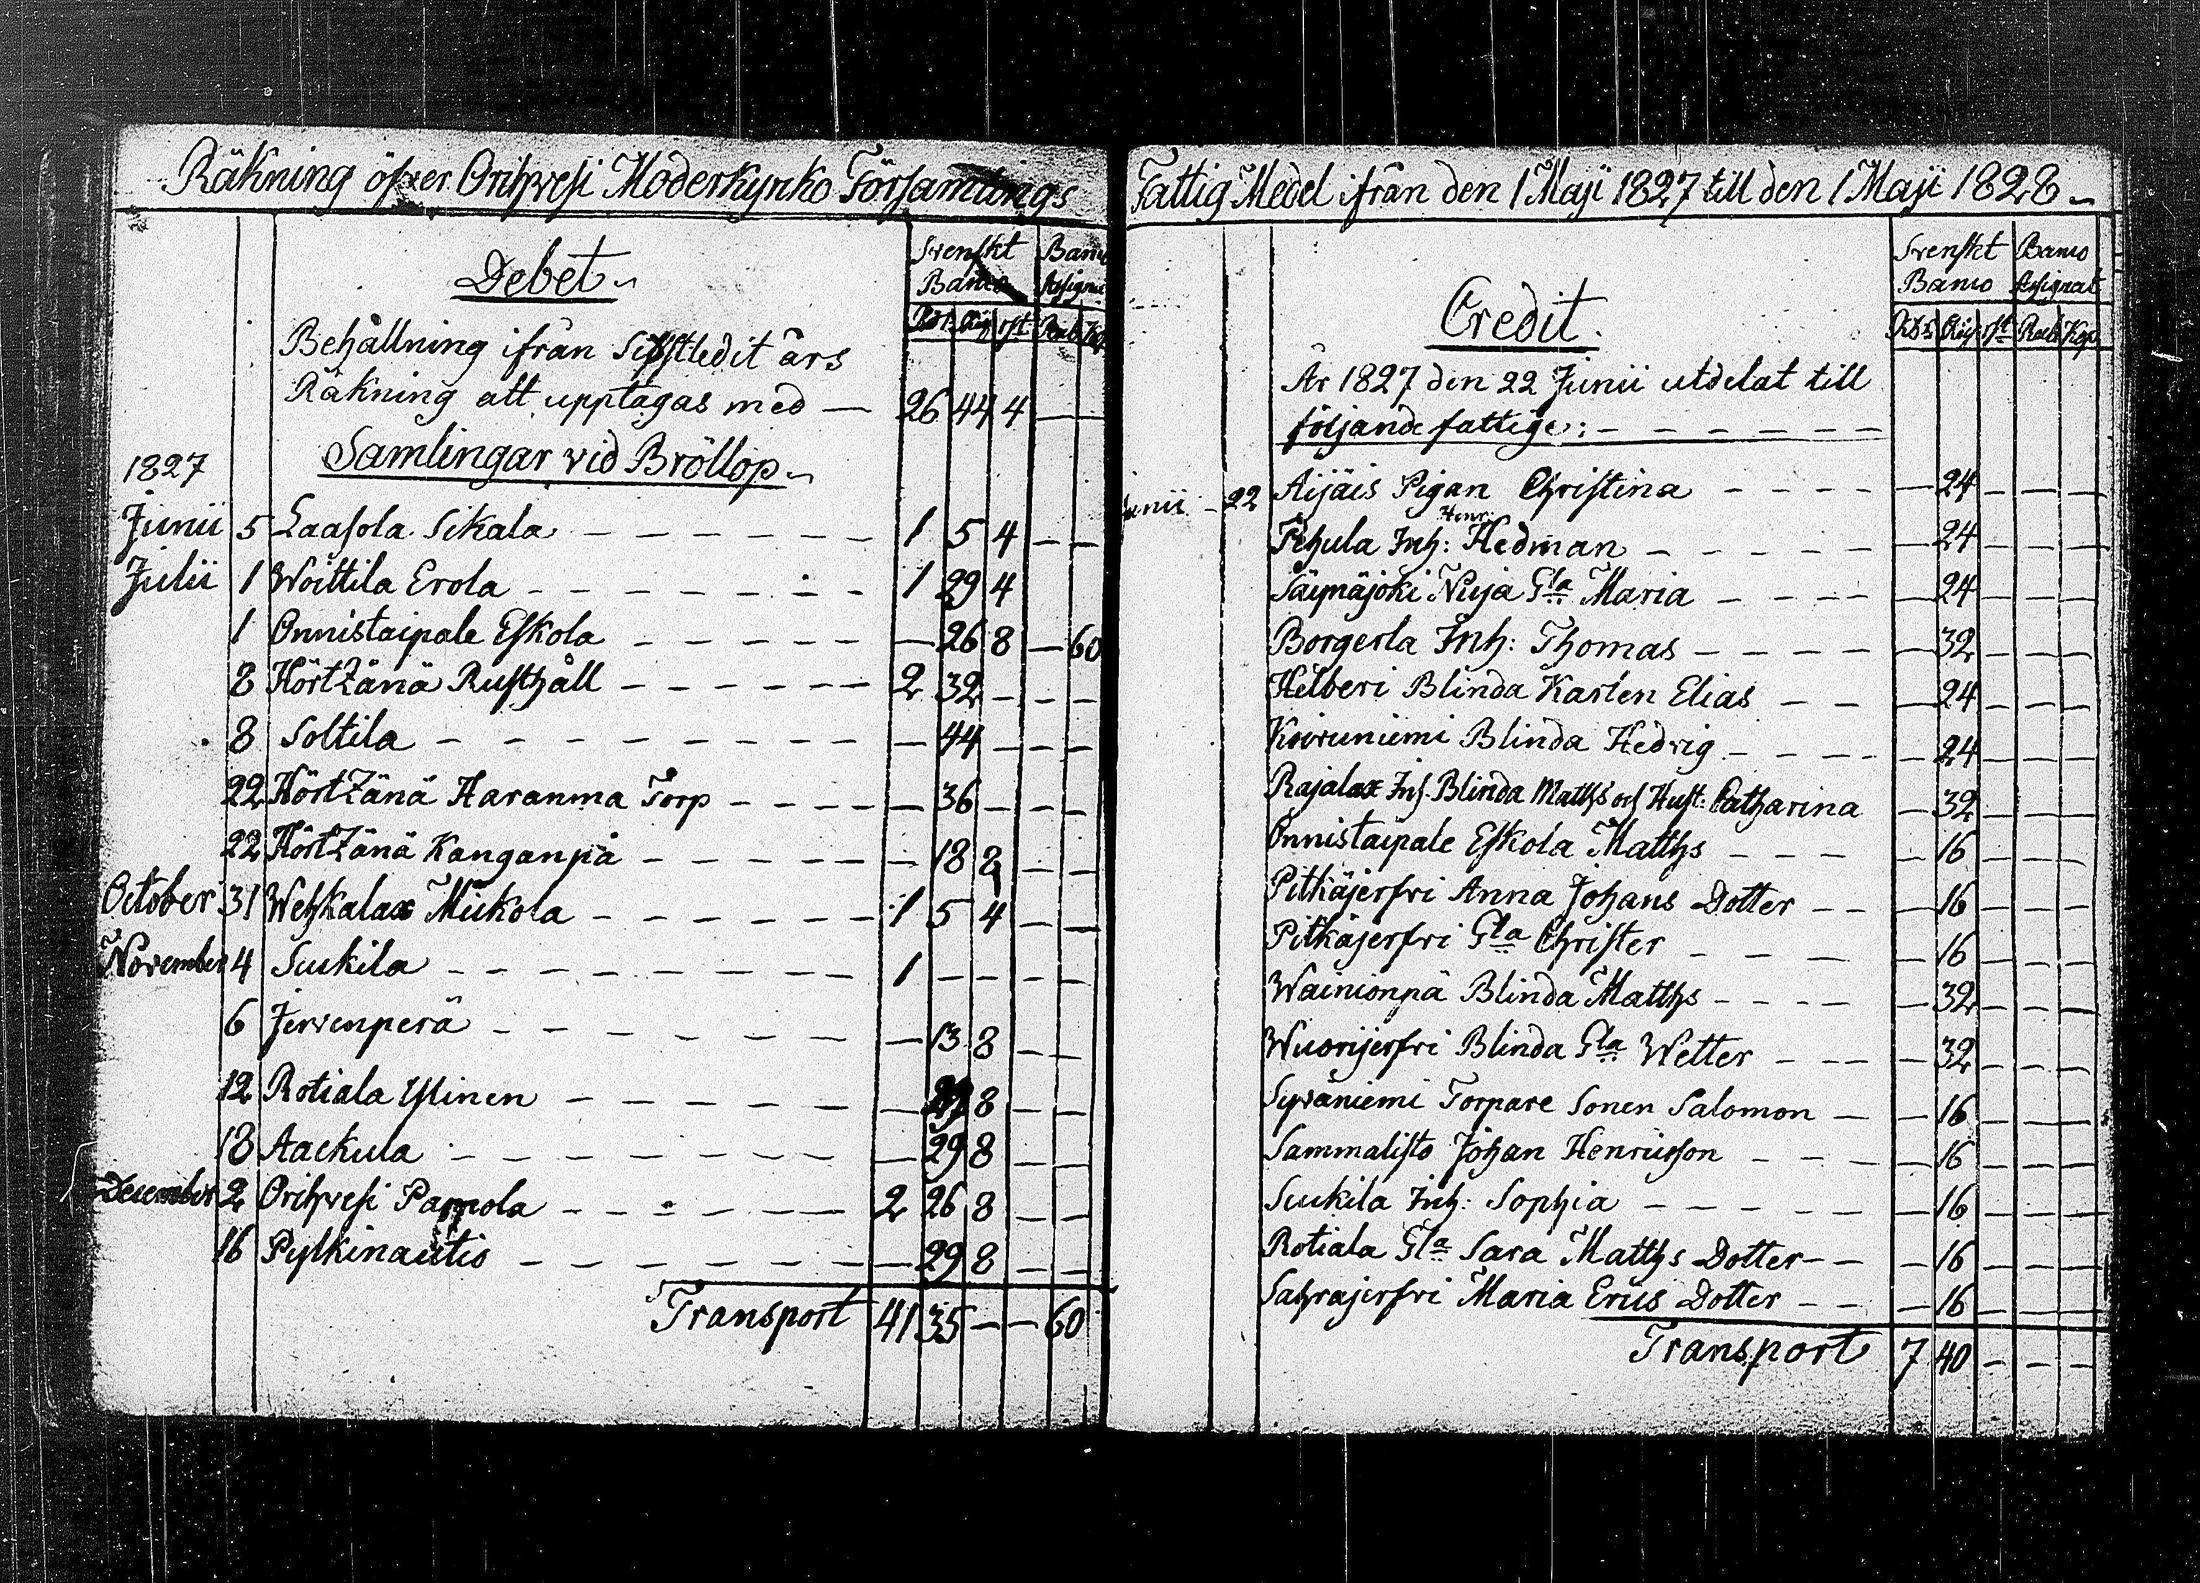 Räkning öfver Orihvesi Moderkyrko Församlings
Debet
Svenskt Banco
Banco Assignat
Rdr Rub Kop
Behållning ifrån Sistledit års
Räkning att upptagas med — 26 44 4 — —
Samlingar vid Bröllop
1827
Junii 5 Laasola Sikala — 1 5 4 — —
Julii 1 Woittila Erola — 1 29 4
1 Onnistaipale Eskola — — 26 8 — 60
8 Hörtzänä Rusthåll — 2 32 — — —
8 Soltila — — 44 — — —
22 Hörtzänä Haranma Torp — — 36 — — —
22 Hörtzänä Kanganpä — — 18 8 — —
October 31 Wehkalax Mickola — 1 5 4 — —
November 4 Suckila — 1 — — — —
6 Jervenperä — — 13 8 — —
12 Rotiala Yllinen — — 8 — —
18 Aackula — — 29 8 — —
December 2 Orihvesi Pappola — 2 26 8 — —
16 Pylkinautio — — 29 8 — —
Transport 41 35 — — 60
Fattig Medel ifrån den 1 Maji 1827 till den 1 Maji 1828
Credit.
Svenskt Banco
Banco Assignat
Rdr rst Rub Kop
År 1827 den 22 Junii utdelat till
följande fattige: —
Junii 22 Aijäis Pigan Christina — — 24 — — —
Pehula Inh: Henr: Hedman — — 24 — — —
Säynäjoki Nuja Gla Maria — — 24 — — —
Borgerla Inh: Thomas — — 32 — — —
Hilberi Blinda Karlen Elias — — 24 — — —
Koivuniemi Blinda Hedvig — — 24 — — —
Rajalax Inh. Blinda Matths och Hust: Catharina — 32 — — —
Onnistaipale Eskola Matths — — 16 — — —
Pitkäjerfvi Anna Johans Dotter — — 16 — — —
Pitkäjerfvi Gla Christer — — 16 — — —
Wainionpä Blinda Matths — — 32 — — —
Wuorijerfvi Blinda Gla Wetter — — 32 — — —
Syväniemi Torpare Sonen Salomon — — 16 — — —
Sammalisto Johan Henricsson — — 16 — — —
Suckila Inh: Sophia — — 16 — — —
Rotiala Gla Sara Matths Dotter — — 16 — — —
Sahrajerfvi Maria Erics Dotter — — 16 — — —
Transport 7 40 — — —